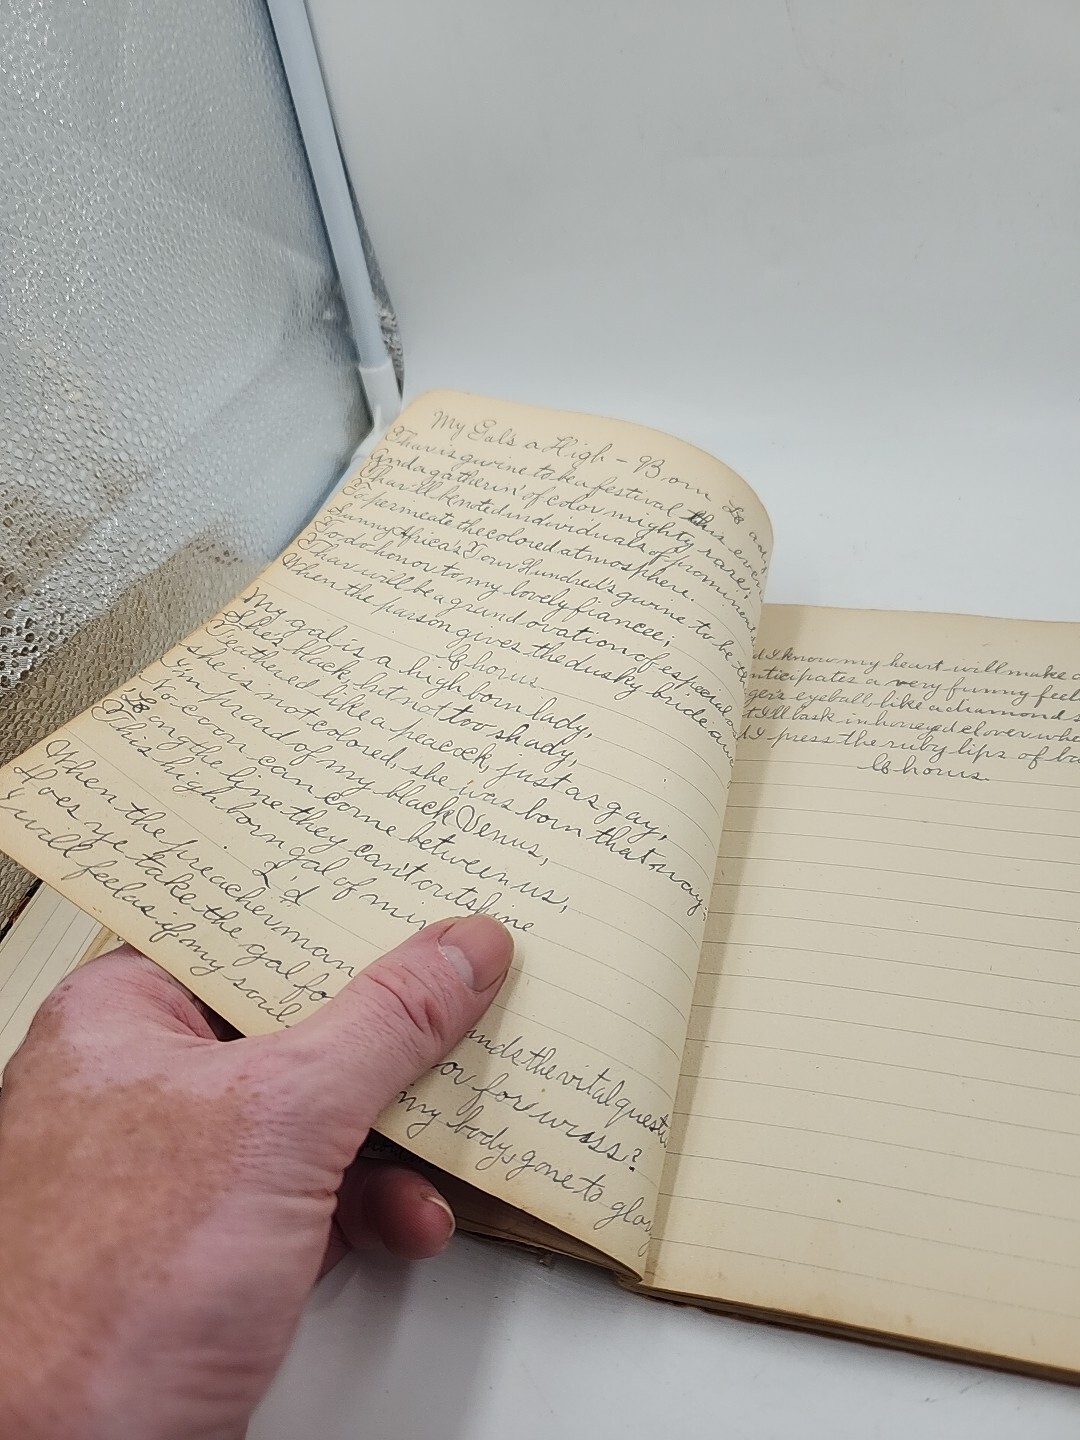 My Gal's a High-Born La
Thar is gwine to be a festival this even
And a gatherin' of color mighty rare,
Thar'll be noted individuals of prominen
To permeate the colored atmosphere.
Sunny Africa's Four Hundred's gwine to be
To do honor to my lovely fiancee;
Thar will be a grand ovation of especial
When the parson gives the dusky bride
Chorus.
My gal is a high born lady,
She's black, but not too shady,
Feathered like a peacock, just as gay,
she is not colored, she was born that way;
I'm proud of my black Venus,
No coon can come between us,
'Long the line they can't outshine
This high born gal of min
2'd
When the preacherman
ands the vital questi
Does ye take the gal fo
or for wuss?
I will feel as if my soul
my body, gone to glory
d I know my heart will make
nticipates a very funny feel
ger's eyeball, like a diamond
I'll bask in honeyed clover whe
I press the ruby lips of
Chorus.